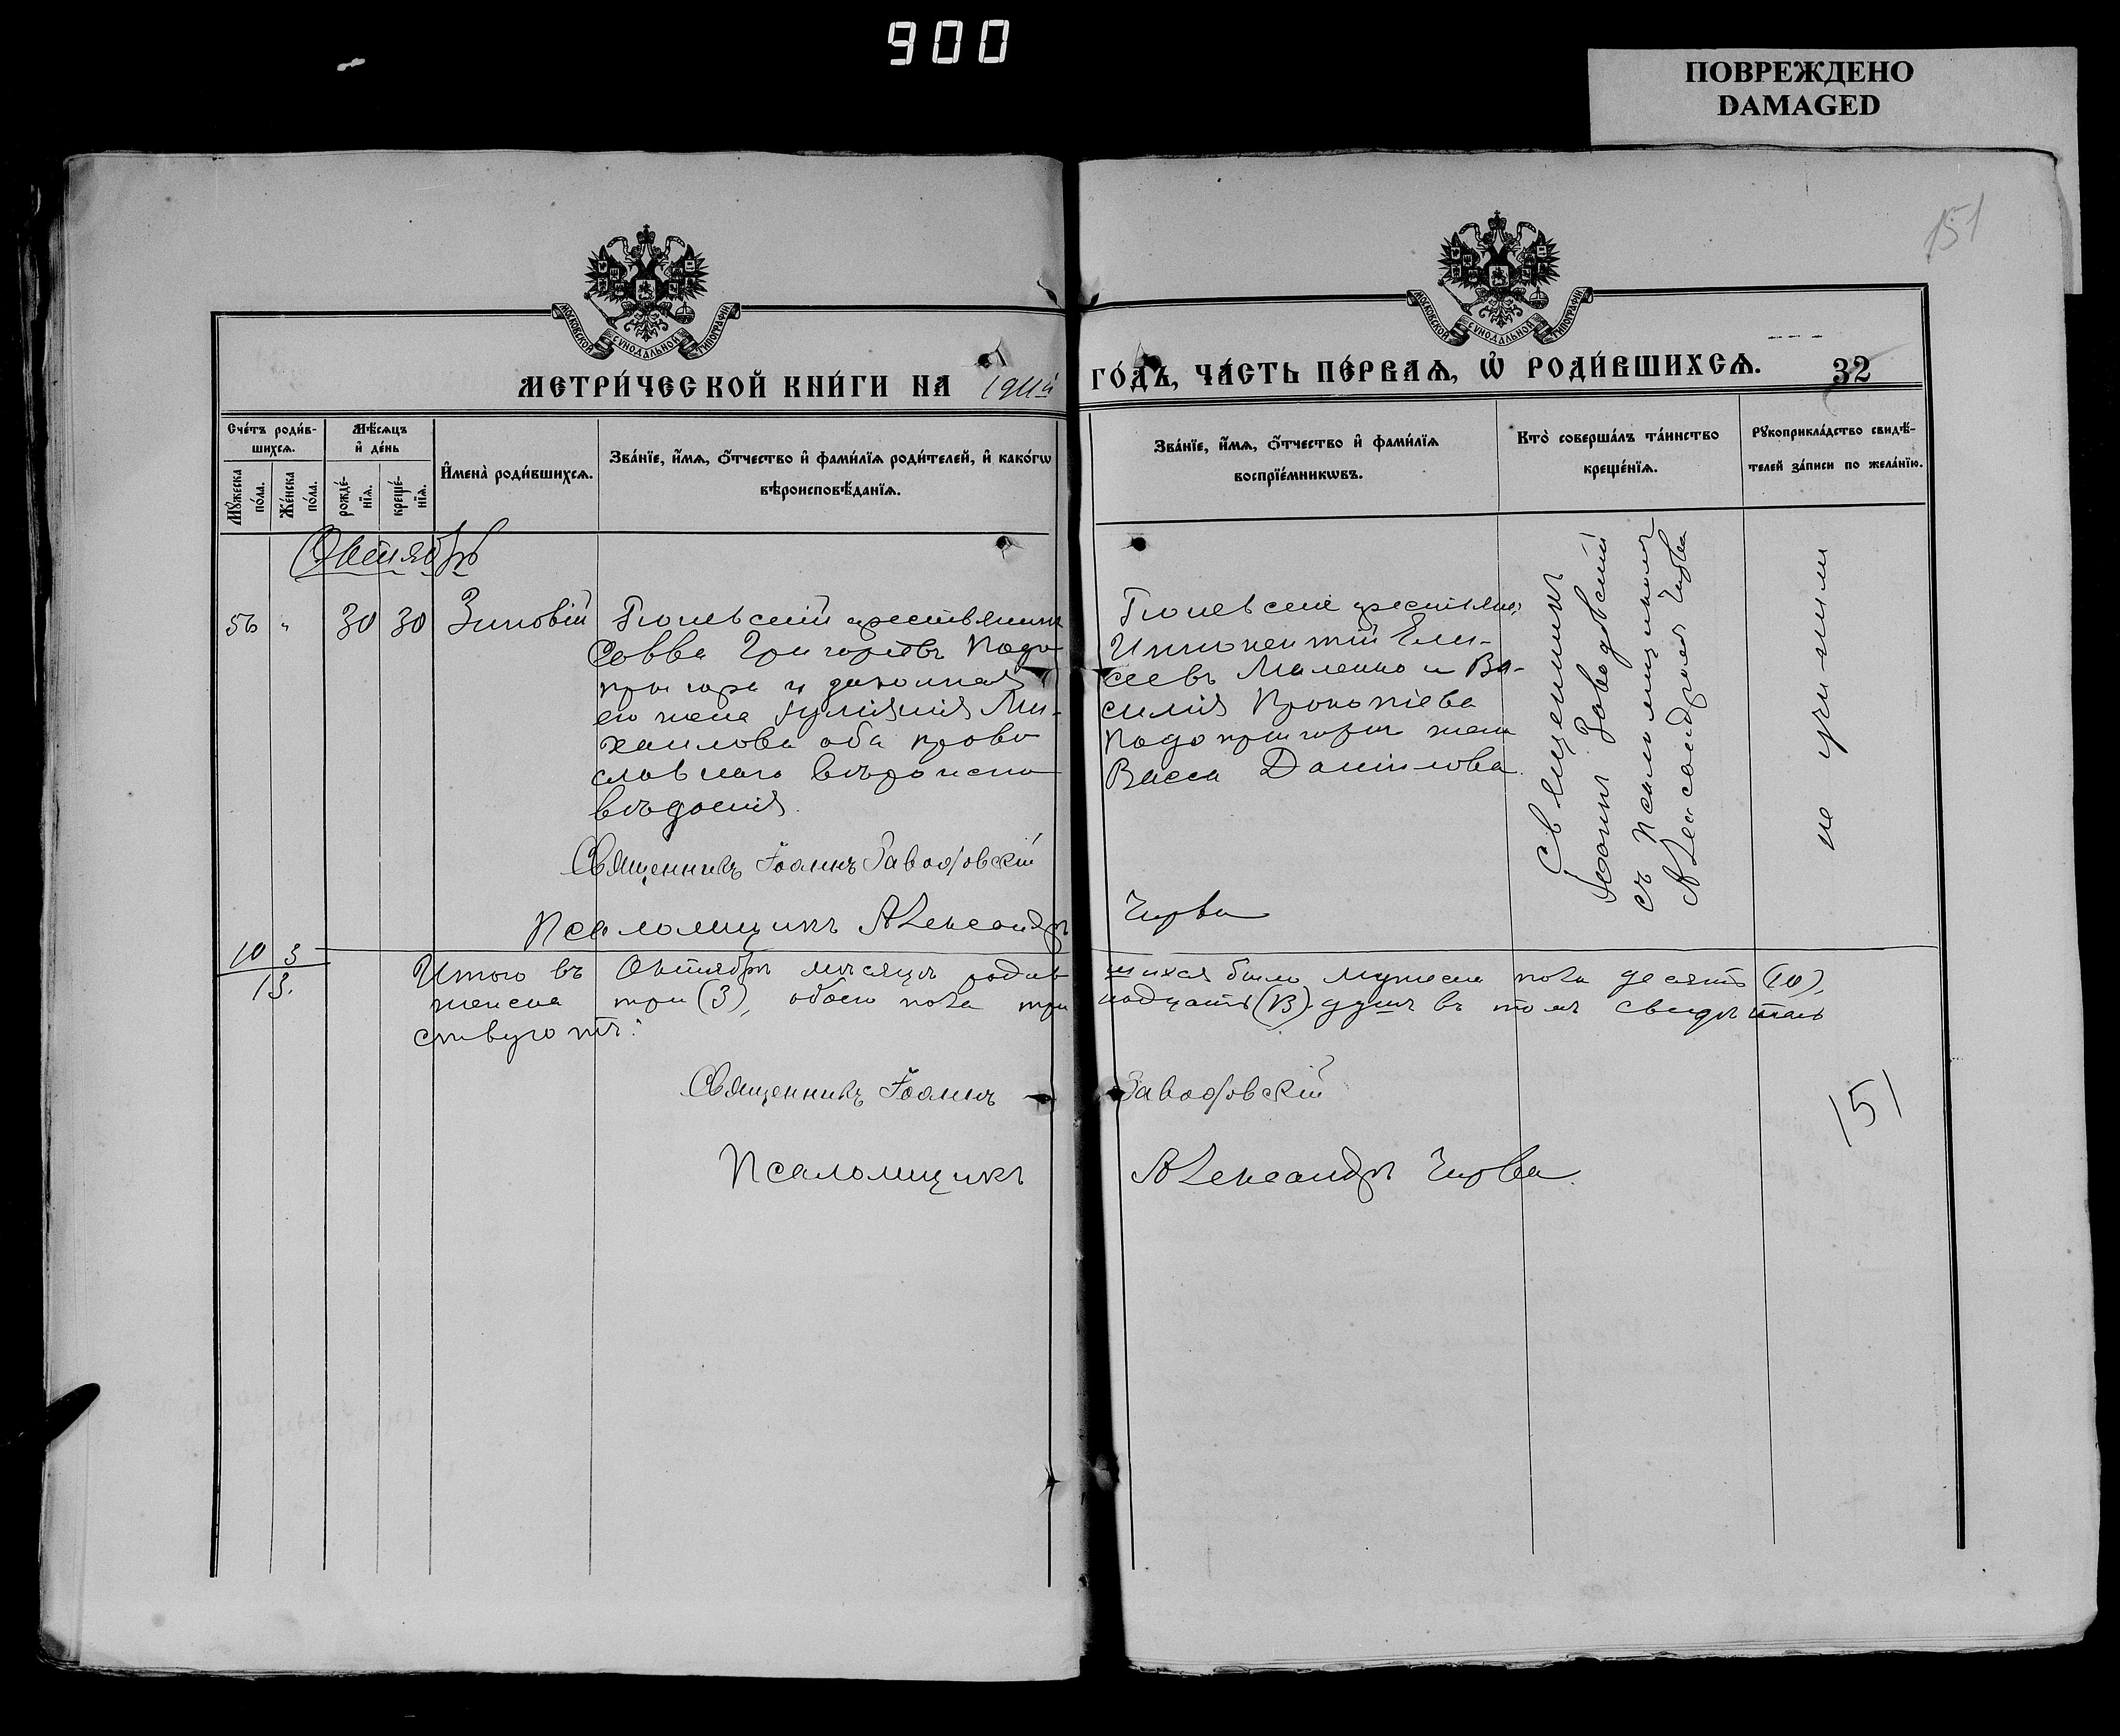 900
ПОВРЕЖДЕНО
DAMAGED
151
МОСКОВСКОЙ СѴНОДАЛЬНОЙ ТИПОГРАФІИ
МОСКОВСКОЙ СѴНОДАЛЬНОЙ ТИПОГРАФІИ
МЕТРИ́ЧЕСКОЙ КНИ́ГИ НА 1911й ГО́ДЪ, ЧА́СТЬ ПЕ́РВАѦ, Ѡ҆ РОДИ́ВШИХСѦ. 32
Сче́тъ роди́в-
шихсѧ.
Мꙋ́жеска
по́ла.
Же́нска
по́ла.
Мѣ́сѧцъ
и҆ де́нь
рожде́-
нїѧ.
креще́-
нїѧ.
И҆мена̀ роди́вшихсѧ.
Зва́нїе, и҆́мѧ, ѻ҆́тчество и҆ фами́лїѧ роди́телей, и҆ како́гѡ
вѣроисповѣ́данїѧ.
Зва́нїе, и҆́мѧ, ѻ҆́тчество и҆ фами́лїѧ
воспрїе́мникѡвъ.
Кто̀ соверша́лъ та́инство
креще́нїѧ.
Рꙋкоприкла́дство свидѣ́-
телей за́писи по жела́нїю.
Октябрь
56 „ 30 30 Зиновій
крестьянинъ
Савва Григорьевъ Подо
пригора и законная
его жена Іуліанія Ми-
хаилова оба право
славнаго вѣроиспо
вѣданія.
крестьяне:
Иннокентій Ели-
сеевъ Маленко и Ва-
силія Прокопіева
Подопригоры жена
Васса Даніилова.
Священникъ
Іоаннъ Заводовскій
съ Псаломщикомъ
Александромъ Чирва
не учинили
Священникъ Іоаннъ Заводовскій
Псаломщикъ Александръ Чирва
10 3
13.
Итого въ Октябрѣ мѣсяцѣ родив шихся было мужеска пола десять (10),
женска три (3), обоего пола три надцать (13) душъ въ томъ свидѣтель
ствуютъ:
Священникъ Іоаннъ Заводовскій
151
Псаломщикъ Александръ Чирва.